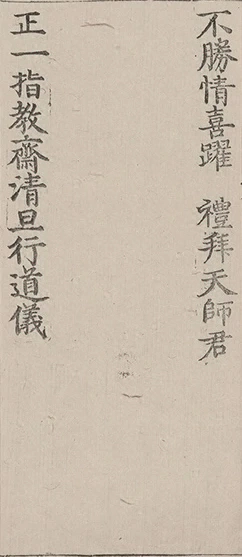 不勝情喜躍　禮拜天師君
正一指教齋清旦行道儀